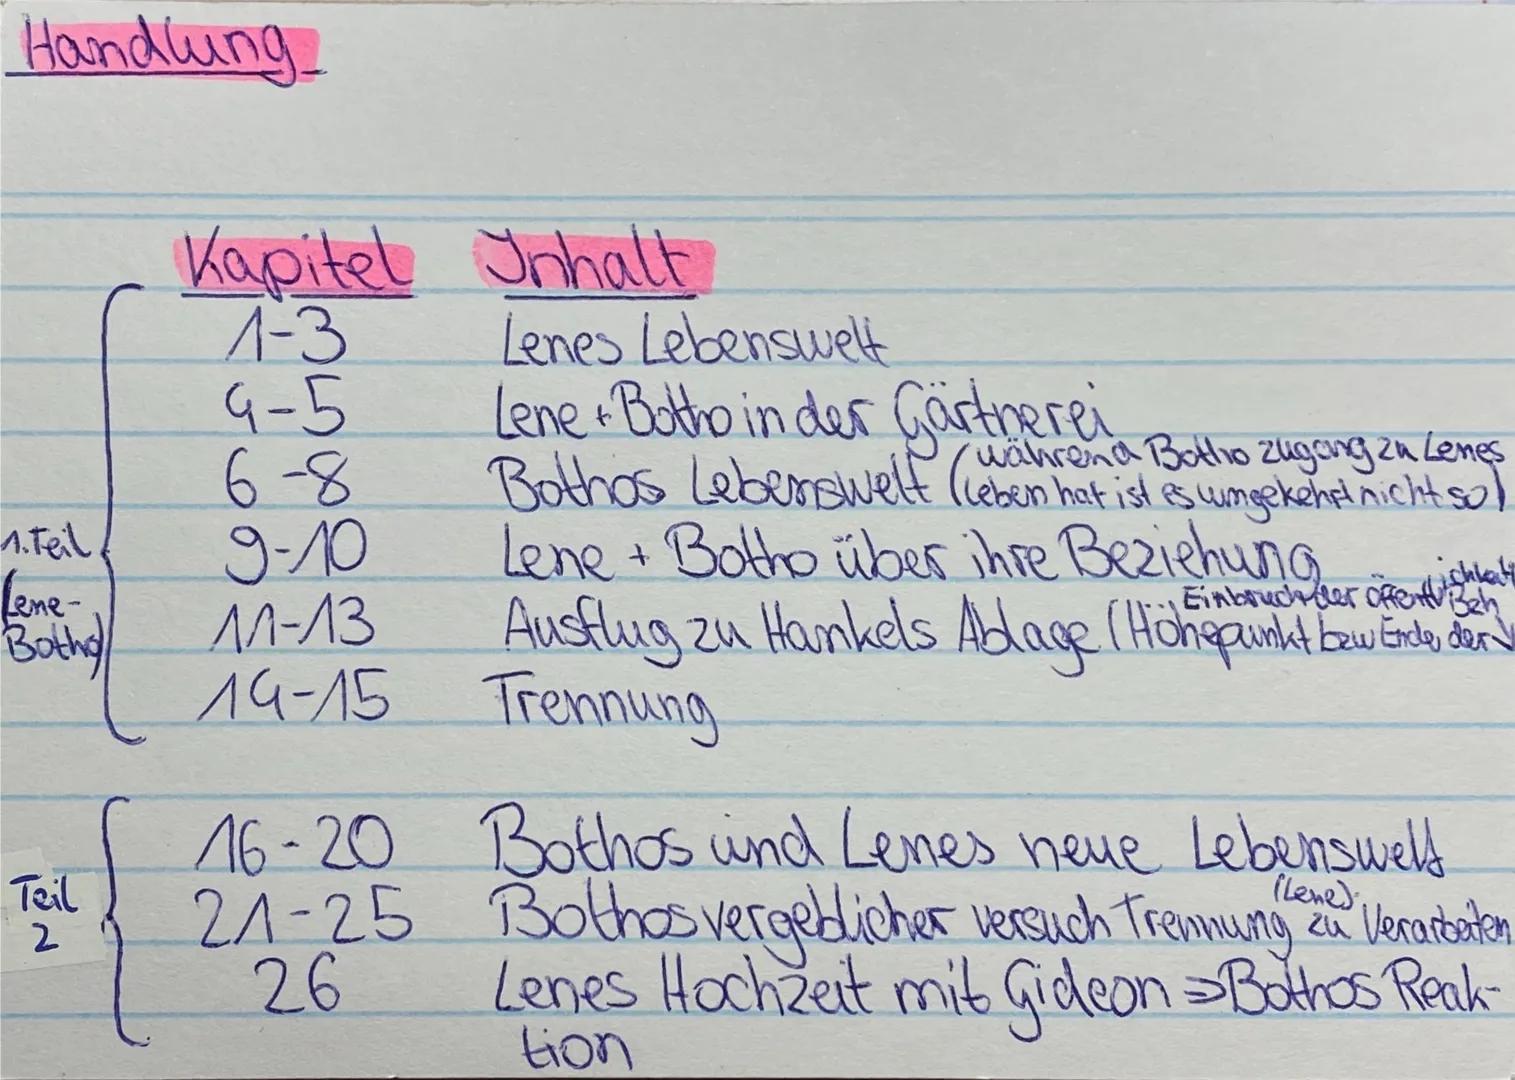 Handlung
Kapitel Inhalt
1-3 Lenes Lebenswelt
4-5 Lene + Botho in der Gärtnerei
6-8 Bothos Lebenswelt (während Botho zugang zu Lenes
Leben hat ist es umgekehrt nicht so)
1. Teil
9-10 Lene + Botho über ihre Beziehung
(Lene-
Botho)
Einbruch der öffentlichkeit
11-13 Ausflug zu Hankels Ablage (Höhepunkt bzw Ende der Bzh
14-15 Trennung
16-20 Bothos und Lenes neue Lebenswelt
Teil
2
21-25 Bothos vergeblicher versuch Trennung (Lene) zu Verarbeiten
26 Lenes Hochzeit mit Gideon ⇒ Bothos Reak-
tion